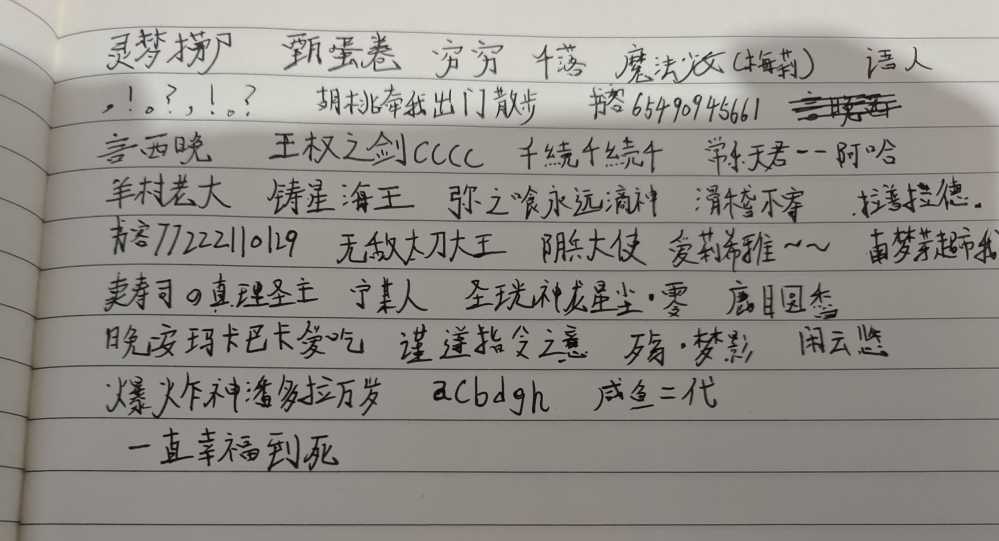 灵梦捞尸 甄蛋卷 穷穷 千落 魔法少女(梅莉) 语人
,!。?,!。? 胡桃牵我出门散步 书客65490945661
言西晚 王权之剑CCCC 千続千続千 常乐天君--阿哈
羊村老大 铸星海王 弥之喰永远滴神 滑稽不 拉普拉德.
书客77222110129 无敌太刀大王 阴兵大使 爱莉希雅~~ 南梦芽超市我
卖寿司の真理圣主 宁某人 圣珖神龙星尘·零 鹿目圆香
晚安玛卡巴卡爱吃 谨遵指令之意 殇·梦影 闲云悠
爆炸神潘多拉万岁 acbdgh 咸鱼二代
一直幸福到死